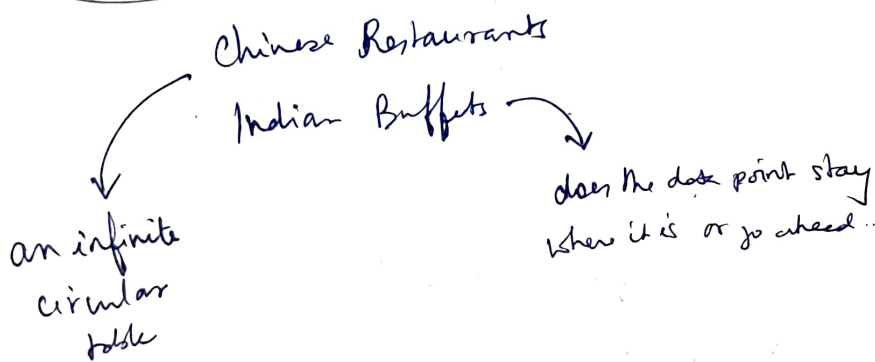 Chinese Restaurants
Indian Buffets
an infinite
circular
table
does the data point stay
where it is or go ahead..